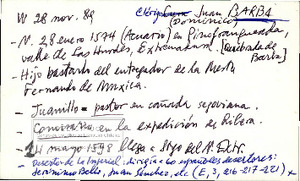 W 28 nov. 89 Clérigo Juan BARBA
(Dominico)
- N. 28 enero 1574 (Acuario) en Pinofranqueada,
valle de Las Hurdes, Extremadura. [apellidado de
Barba]
- Hijo bastardo del entregador de la Mesta
Fernando de Muxica.
- Juanillo = pastor en cañada segoviana.
- en la expedición de Ribera.
- 14 marzo 1598 llega a Stgo del N. Extr.
- Desertó de la Imperial: dirigía 60 españoles desertores:
Jerónimo Bello, Juan Sánchez, etc (E, 3, 216-217-221)